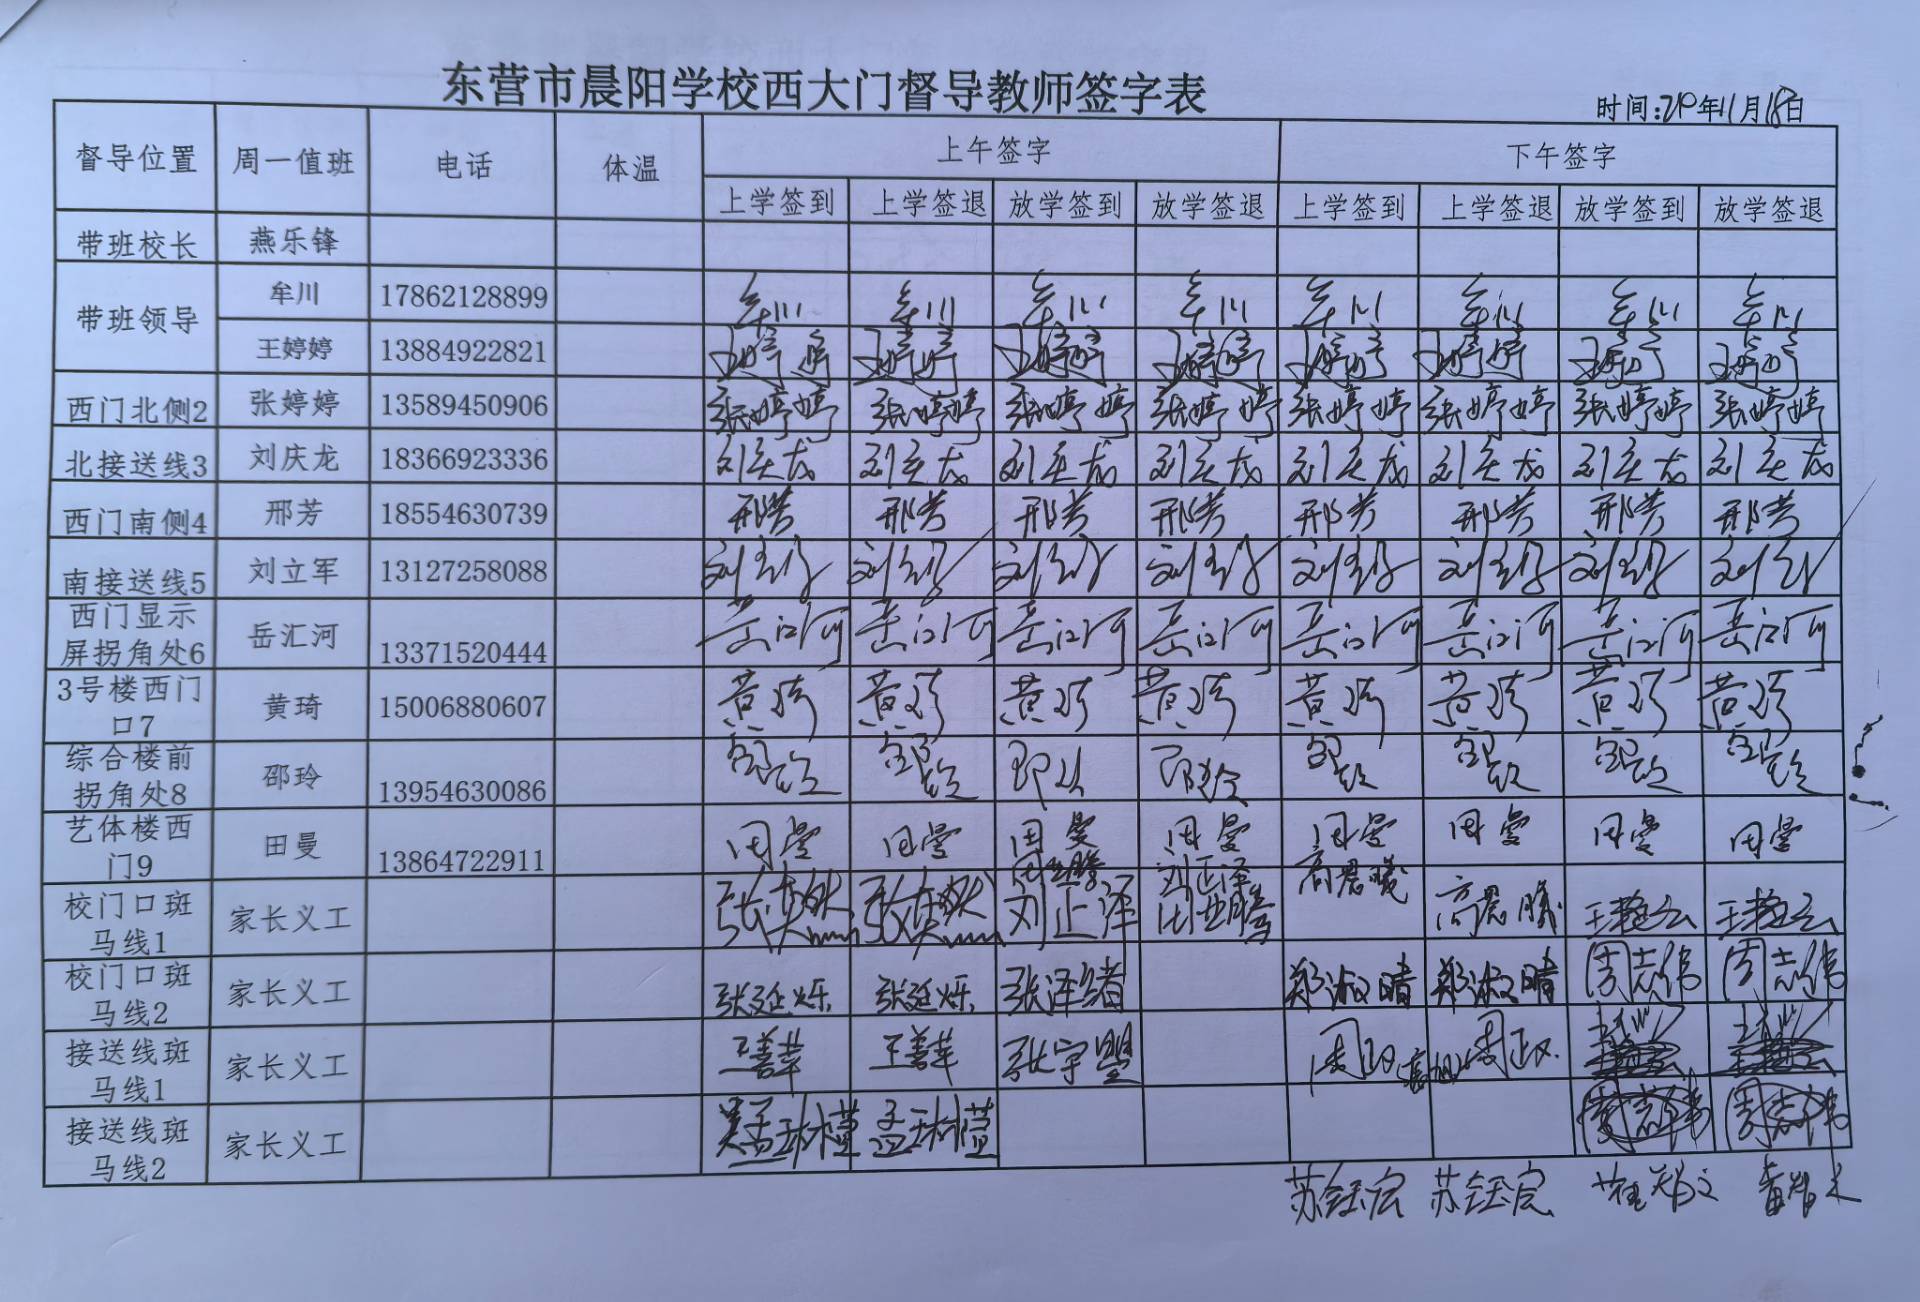 东营市晨阳学校西大门督导教师签字表
时间: 年11月18日
督导位置 周一值班 电话 体温 上午签字 下午签字
上学签到 上学签退 放学签到 放学签退 上学签到 上学签退 放学签到 放学签退
带班校长 燕乐锋
带班领导 牟川 17862128899 牟川 牟川 牟川 牟川 牟川 牟川 牟川 牟川
王婷婷 13884922821 王婷婷 王婷婷 王婷婷 王婷婷 王婷婷 王婷婷 王婷婷 王婷婷
西门北侧2 张婷婷 13589450906 张婷婷 张婷婷 张婷婷 张婷婷 张婷婷 张婷婷 张婷婷 张婷婷
北接送线3 刘庆龙 18366923336 刘庆龙 刘庆龙 刘庆龙 刘庆龙 刘庆龙 刘庆龙 刘庆龙 刘庆龙
西门南侧4 邢芳 18554630739 邢芳 邢芳 邢芳 邢芳 邢芳 邢芳 邢芳 邢芳
南接送线5 刘立军 13127258088 刘立军 刘立军 刘立军 刘立军 刘立军 刘立军 刘立军 刘立军
西门显示
屏拐角处6 岳汇河 13371520444 岳汇河 岳汇河 岳汇河 岳汇河 岳汇河 岳汇河 岳汇河 岳汇河
3号楼西门
口7 黄琦 15006880607 黄琦 黄琦 黄琦 黄琦 黄琦 黄琦 黄琦 黄琦
综合楼前
拐角处8 邵玲 13954630086 邵玲 邵玲 邵玲 邵玲 邵玲 邵玲 邵玲 邵玲
艺体楼西
门9 田曼 13864722911 田曼 田曼 田曼 田曼 田曼 田曼 田曼 田曼
校门口班
马线1 家长义工 刘正泽 刘正泽 高晨曦 高晨曦 王艳云 王艳云
校门口班
马线2 家长义工 张延烁 张延烁 张泽绪 郑淑晴 郑淑晴 周志伟 周志伟
接送线班
马线1 家长义工 王善苹 王善苹 张宇曌
接送线班
马线2 家长义工
苏钰宸 苏钰宸